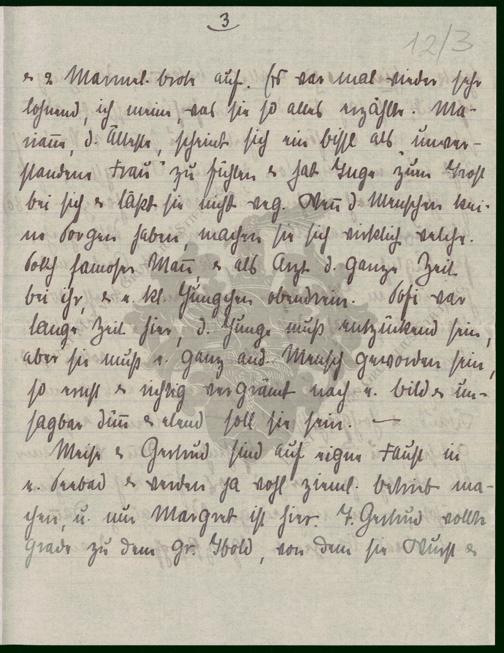 3
12/3
& 2 Marmel. brote auf. Es war mal wieder sehr
lohnend, ich meine, was sie so alles erzählte. Ma-
rian̄e, d. Älteste, scheint sich ein bißl als "unver-
standene Frau" zu fühlen & hat Inge zum Trost
bei sich & läßt sie nicht weg. Wen̄ d. Menschen kei-
ne Sorgen haben machen sie sich wirklich welche.
Solch famoser Man̄ & als Arzt d. ganze Zeit
bei ihr, & e. kl. Jüngchen obendrein. Sofi war
lange Zeit hier, d. Junge muß entzückend sein,
aber sie muß e. ganz and. Mensch geworden sein,
so ernst & richtig vergrämt nach e. bild & un-
sagbar dün̄ & elend soll sie sein. —
Meise & Gertrud sind auf eigne Faust in
e. Seebad & werden ja wohl zieml. betrieb ma-
chen, u. nur Margret ist hier. F. Gertrud wollte
grade zu dem Gr. Ibold, von dem sie Wurst &